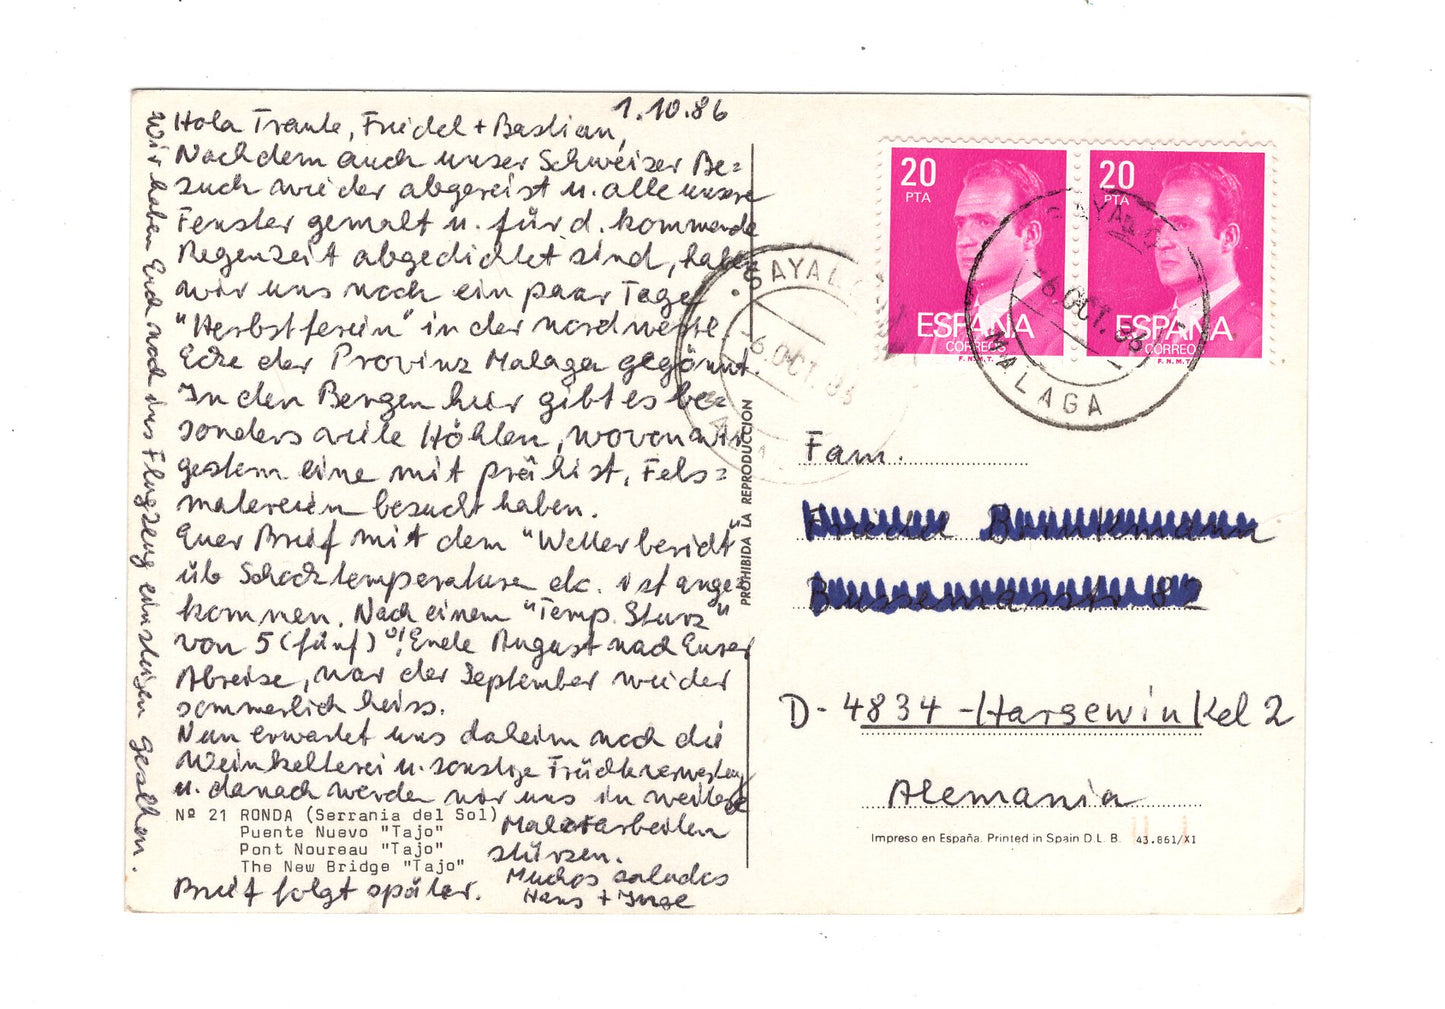 1.10.86
Hola Traute, Friedel + Bastian,
Nachdem auch unser Schweizer Be=
such wieder abgereist u. alle unsere
Fenster gemalt u. für d. kommende
Regenzeit abgedichtet sind, haben
wir uns noch ein paar Tage
"Herbstferien" in der nordwestl.
Ecke der Provinz Malaga gegönnt.
In den Bergen hier gibt es be=
sonders viele Höhlen, wovon wir
gestern eine mit prähist. Fels=
malereien besucht haben.
Euer Brief mit dem "Wetterbericht"
üb Schocktemperaturen etc. ist ange=
kommen. Nach einem "Temp. Sturz"
von 5 (fünf) °! Ende August nach Eurer
Abreise, war der September wieder
sommerlich heiss.
Nun erwartet uns daheim noch die
Weinkellerei u. sonstige Früchteverwertung
u. danach werden wir uns in weitere
Malerarbeiten
stürzen.
Muchos saludos
Hans + Inge
Brief folgt später.
Wir haben Euch noch ins Flugzeug einsteigen gesehen.
Nº 21 RONDA (Serrania del Sol)
Puente Nuevo "Tajo"
Pont Noureau "Tajo"
The New Bridge "Tajo"
PROHIBIDA LA REPRODUCCION
20
PTA
ESPAÑA
CORREOS
F.N.M.T.
20
PTA
ESPAÑA
CORREOS
F.N.M.T.
-6 OCT. 86
MALAGA
-6 OCT. 86
Fam.
D-4834-Harsewinkel 2
Alemania
Impreso en España. Printed in Spain D.L.B. 43.861/XI